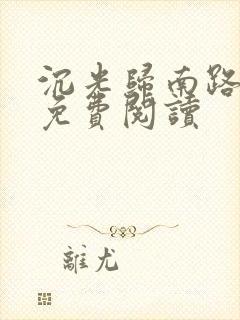 沉光歸南路
免費閱讀
離尤